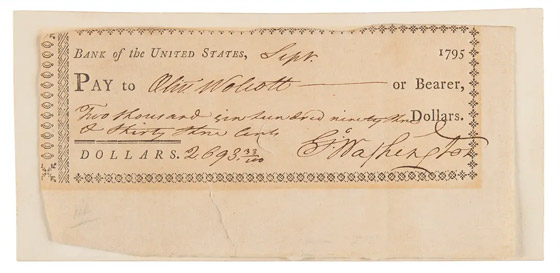 BANK of the UNITED STATES, Sept. 1795
PAY to Oliv. Wolcott or Bearer,
Two thousand six hundred ninety three Dollars.
& thirty three Cents
DOLLARS. 2693 33/100 Go. Washington